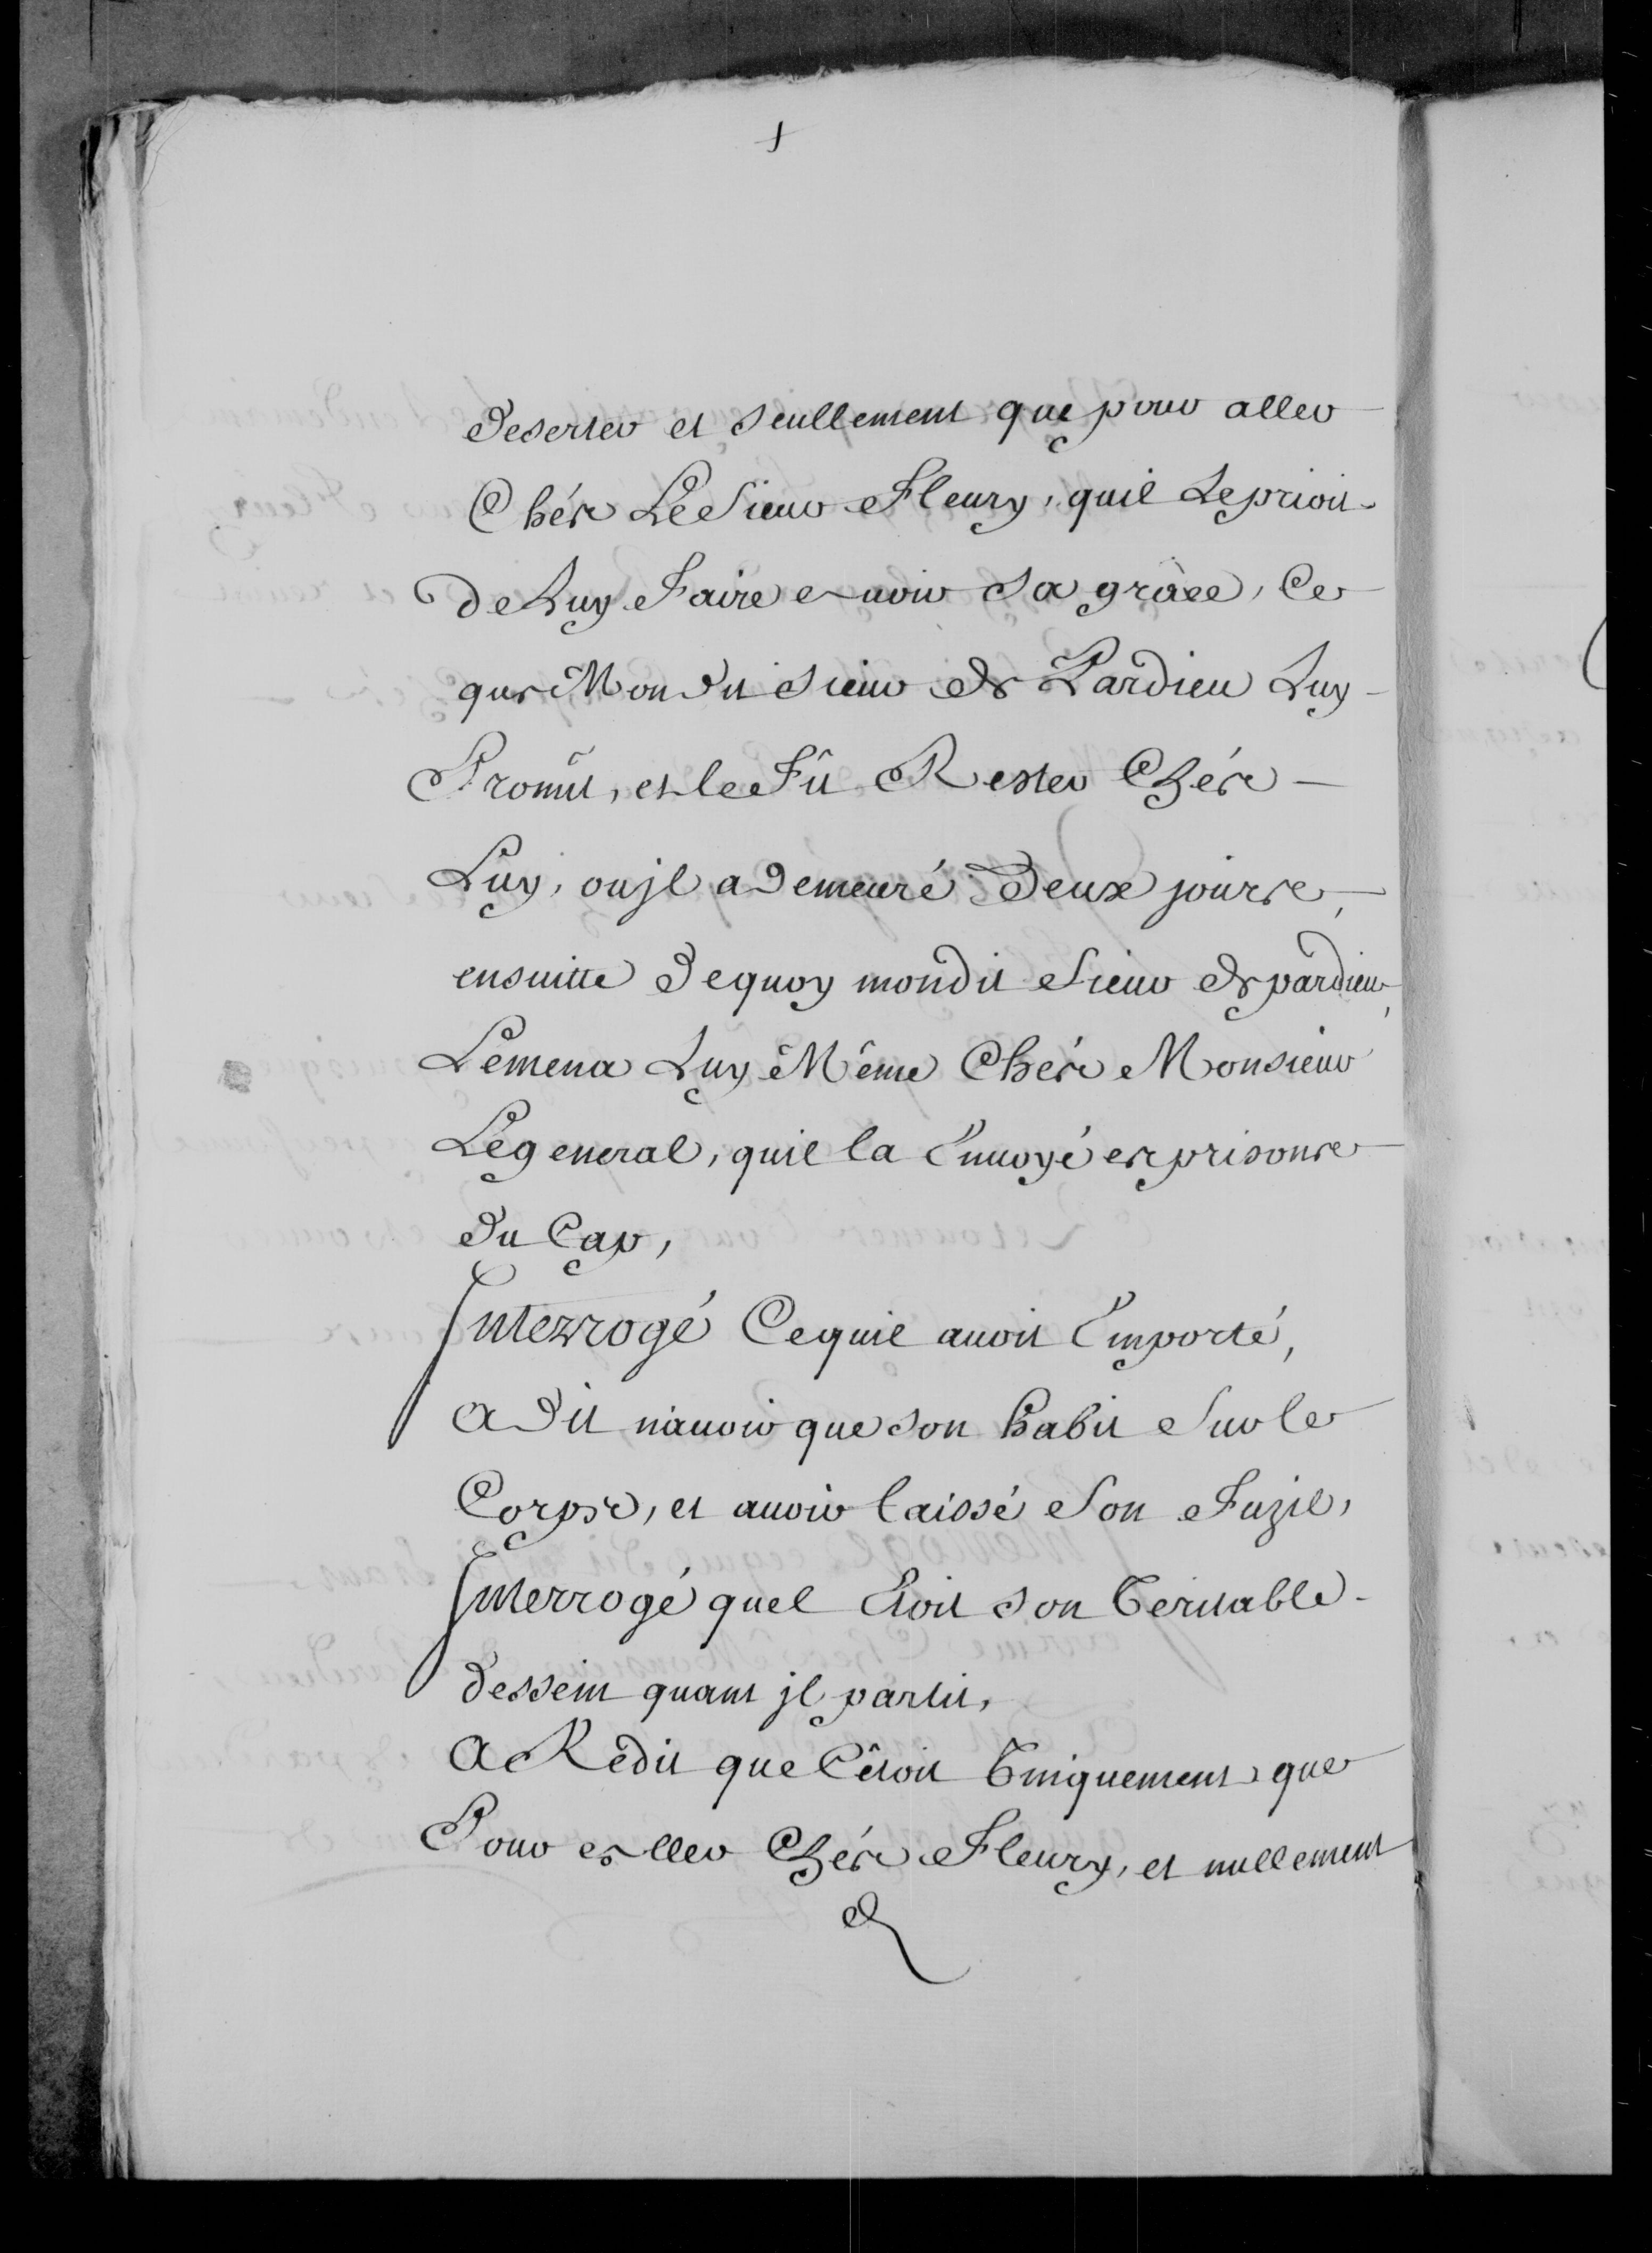 deserter et seullement que pour aller
Chés Le Sieur Fleury, quil Le prioit
de Luy Faire avoir Sa grâce, Ce
que Mondit Sieur de Pardieu Luy
Promît, et le Fît Rester Chés
Luy, ou jl a Demeuré Deux jours,
ensuitte Dequoy mondit Sieur de pardieu,
L'emena Luy Même Chés Monsieur
Le general, quil la Envoyé es prisons
Du Cap,
Interrogé Cequil avoit Emporté,
a Dit n'avoir que son habit Sur le
Corps, et avoir laissé Son Fuzil,
Interrogé quel Etoit son Veritable
dessein quant jl partit,
a Rédit que C'étoit Uniquement que
Pour aller Chés Fleury, et nullement